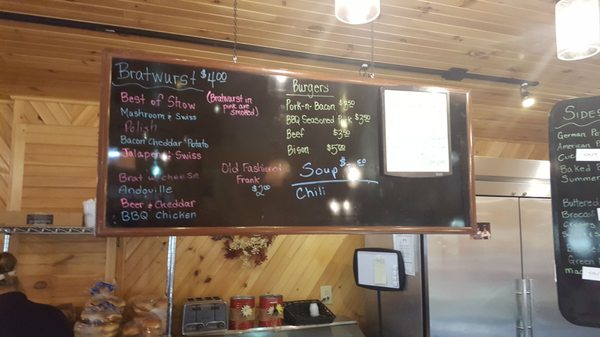 Bratwurst $4.00
Best of Show
(Bratwurst in
pink are
smoked)
Mashroom & Swiss
Polish
Bacon Cheddar Potato
Jalapeño Swiss
Brat w cheese
Andouille
Beer & Cheddar
BBQ Chicken
Old Fashioned
Frank
$2.00
Burgers
Pork-n-Bacon
BBQ Seasoned Pork $3.50
Beef $3.50
Bison $5.00
Soup
Chili
Sides
German
American
Baked
Summer
Buttered
Green